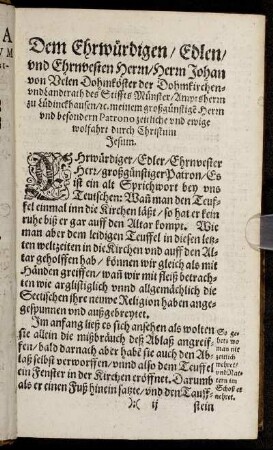 Dem Ehrwürdigen / Edlen /
vnd Ehrnvesten Herrn / Herrn Johan
von Velen Dohmköster der Dohmkirchen-
vnd Landerath des Stiffts Münster / Amptsherrn
zu Lüdinckhausen / ꝛc. meinem großgünstigē Herrn
vnd besondern Patrono zeitliche vnd ewige
wolfahrt durch Christum
Jesum.
EHrwürdiger / Edler / Ehrnvester
Herr / großgünstiger Patron / Es
ist ein alt Sprichwort bey vns
Teutschen: Wañ man den Teuf-
fel einmal inn die Kirchen läßt / so hat er kein
ruhe biß er gar auff den Altar kompt. Wie
man aber dem leidigen Teuffel in diesen letz-
ten weltzeiten in die Kirchen vnd auff den Al-
tar geholffen hab / können wir gleich als mit
Händen greiffen / wañ wir mit fleiß betrach-
ten wie arglistiglich vnnd allgemächlich die
Sectischen ihre neuwe Religion haben ange-
gespunnen vnd außgebreytet.
Im anfang ließ es sich ansehen als wolten
sie allein die mißbräuch deß Ablaß angreif-
fen / bald darnach aber habē sie auch den Ab-
laß selbst verworffen / vnnd also dem Teuffel
ein Fenster in der Kirchen eröffnet. Darumb
als er einen Fuß hinein satzte / vnd den Tauff-
So ge-
hets wo
man nit
zeitlich
wehret /
vnd Nat-
tern im
Schoß er
nehret.
):( ij
stein